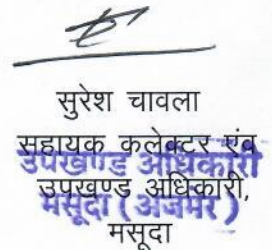 सुरेश चावला
सहायक कलेक्टर एंव
उपखण्ड अधिकारी
उपखण्ड अधिकारी,
मसूदा (अजमेर)
मसूदा